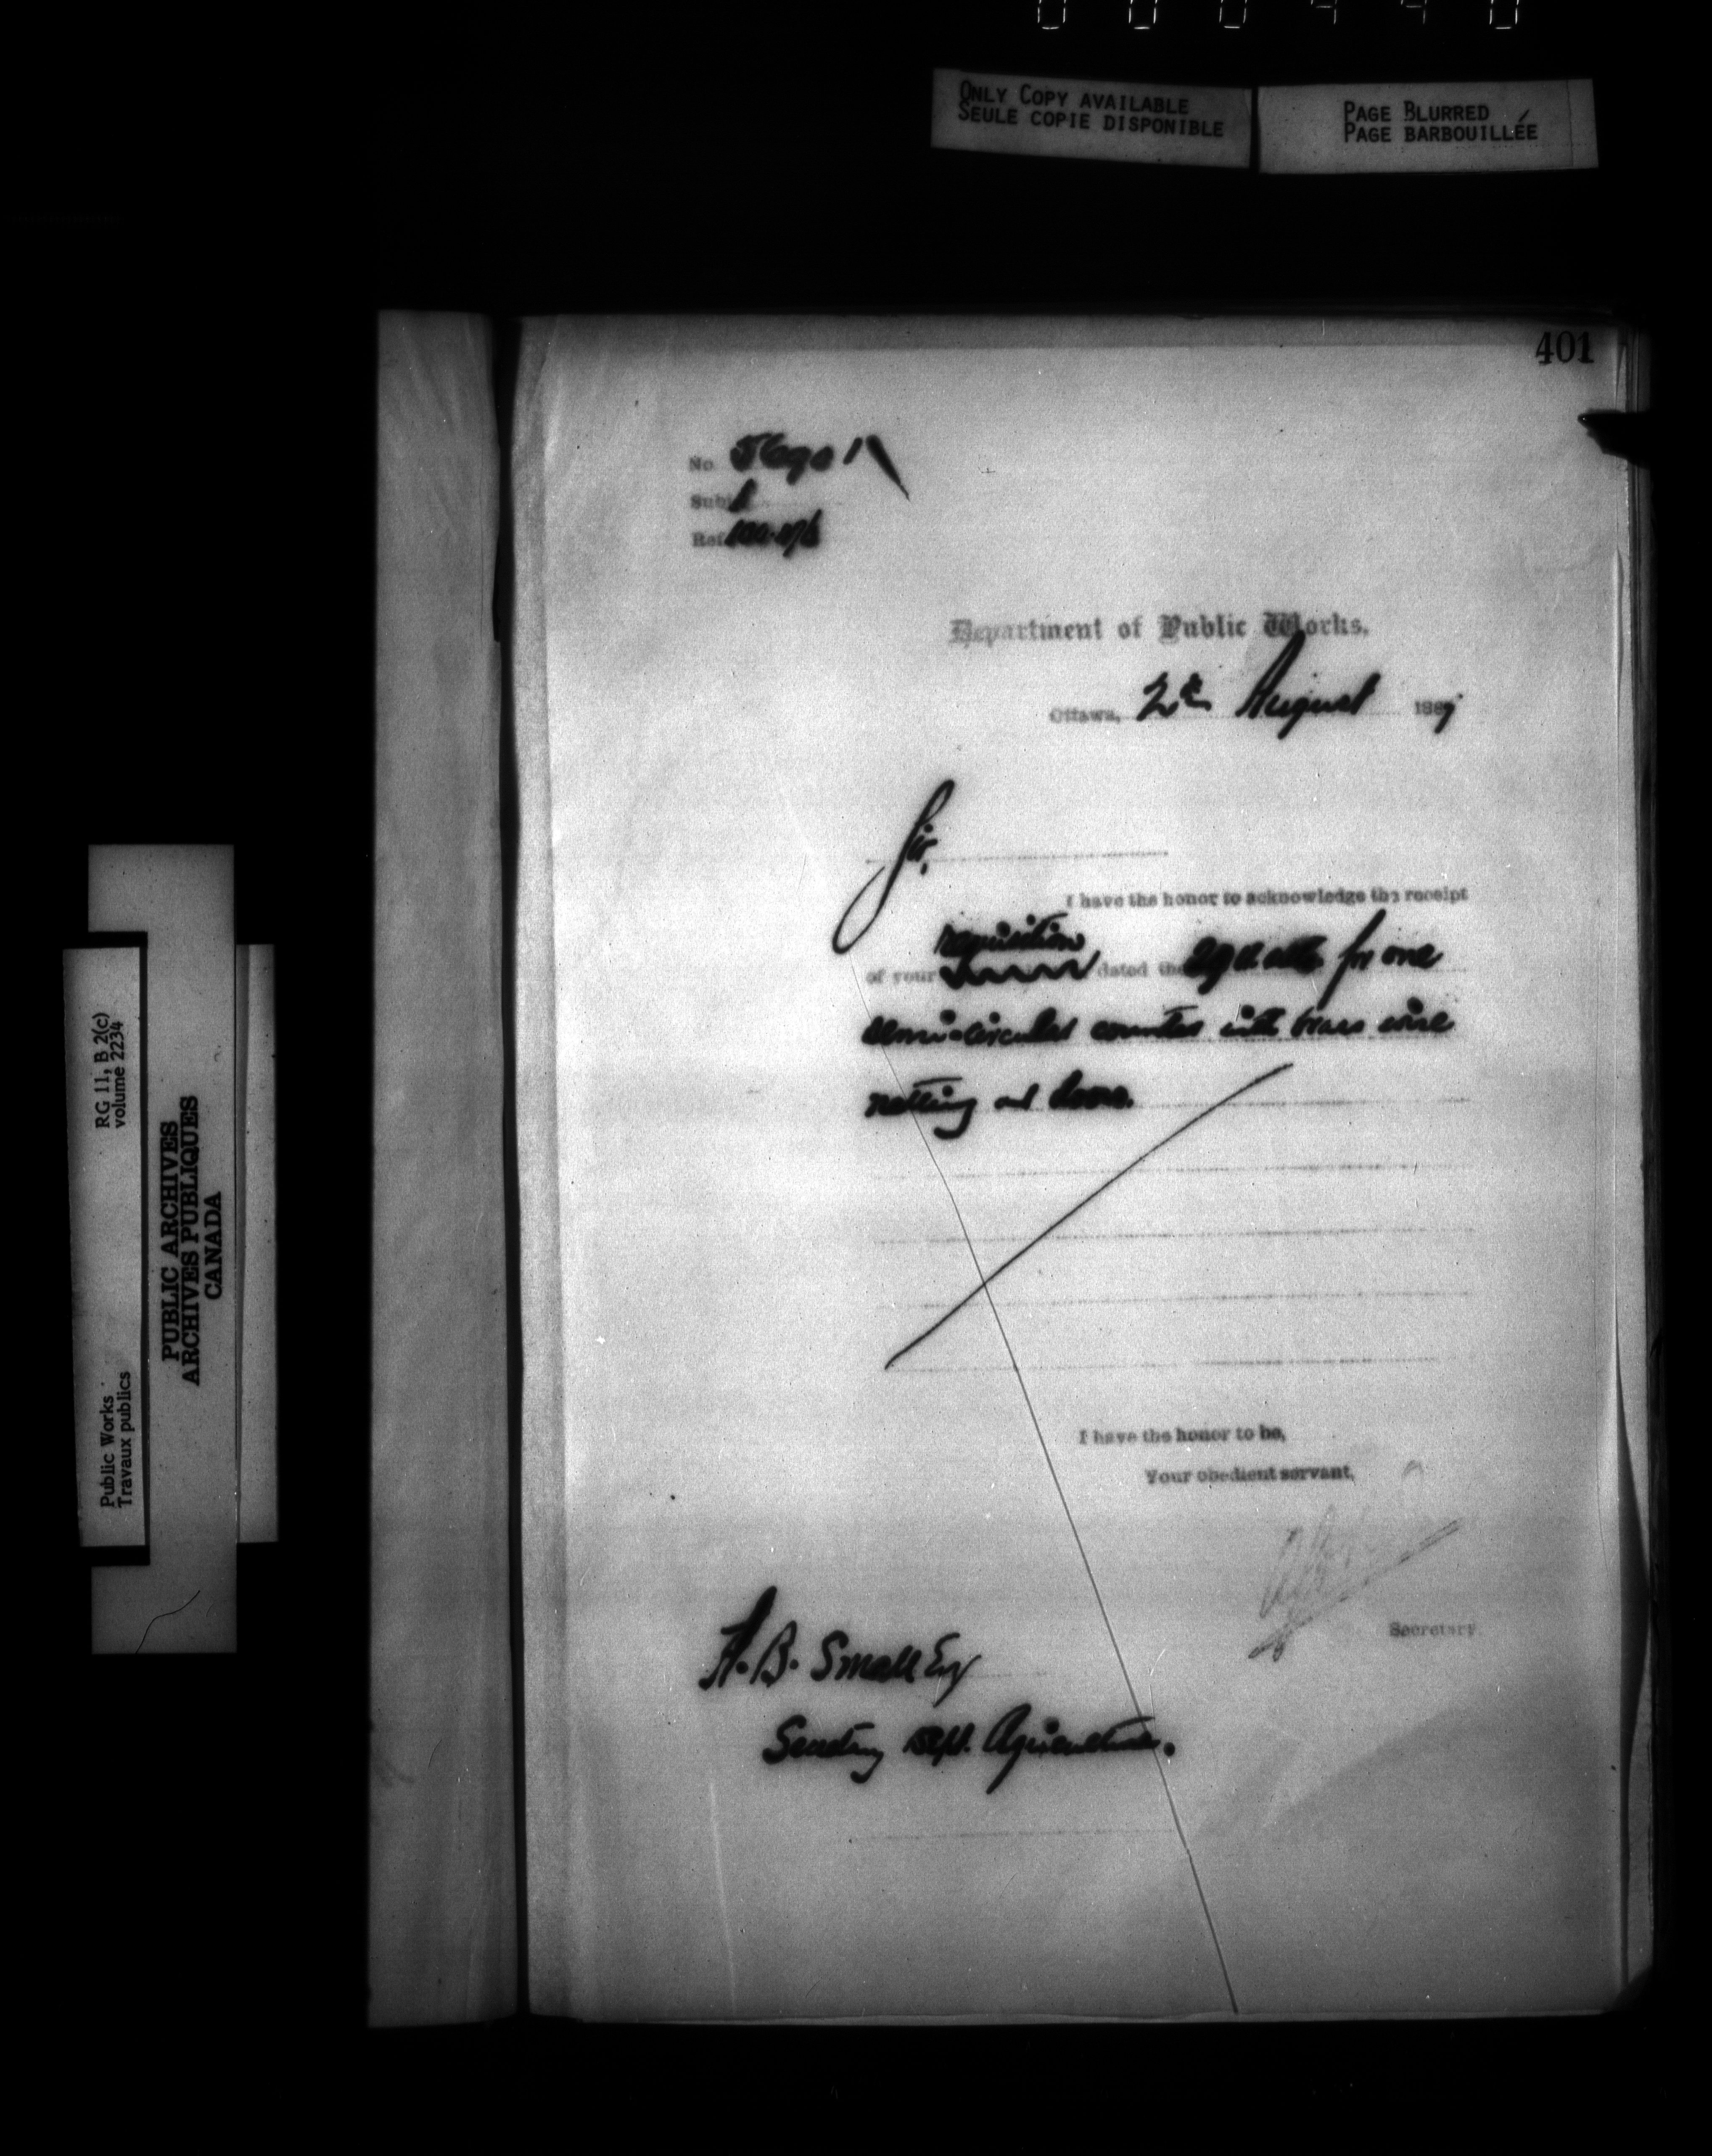 ONLY COPY AVAILABLE
SEULE COPIE DISPONIBLE
PAGE BLURRED
PAGE BARBOUILLÉE
401
No
Subj
Ref
Department of Public Works.
Ottawa, 2nd August 1887
Sir,
I have the honor to acknowledge the receipt
requisition
of your dated the 29th ulto for one
semi-circular counter with brass wire
netting and doors.
I have the honor to be,
Your obedient servant,
Secretary.
H. B. Small Esq
Secretary Dept. Agriculture.
RG 11, B 2(c)
volume 2234
Public Works
Travaux publics
PUBLIC ARCHIVES
ARCHIVES PUBLIQUES
CANADA